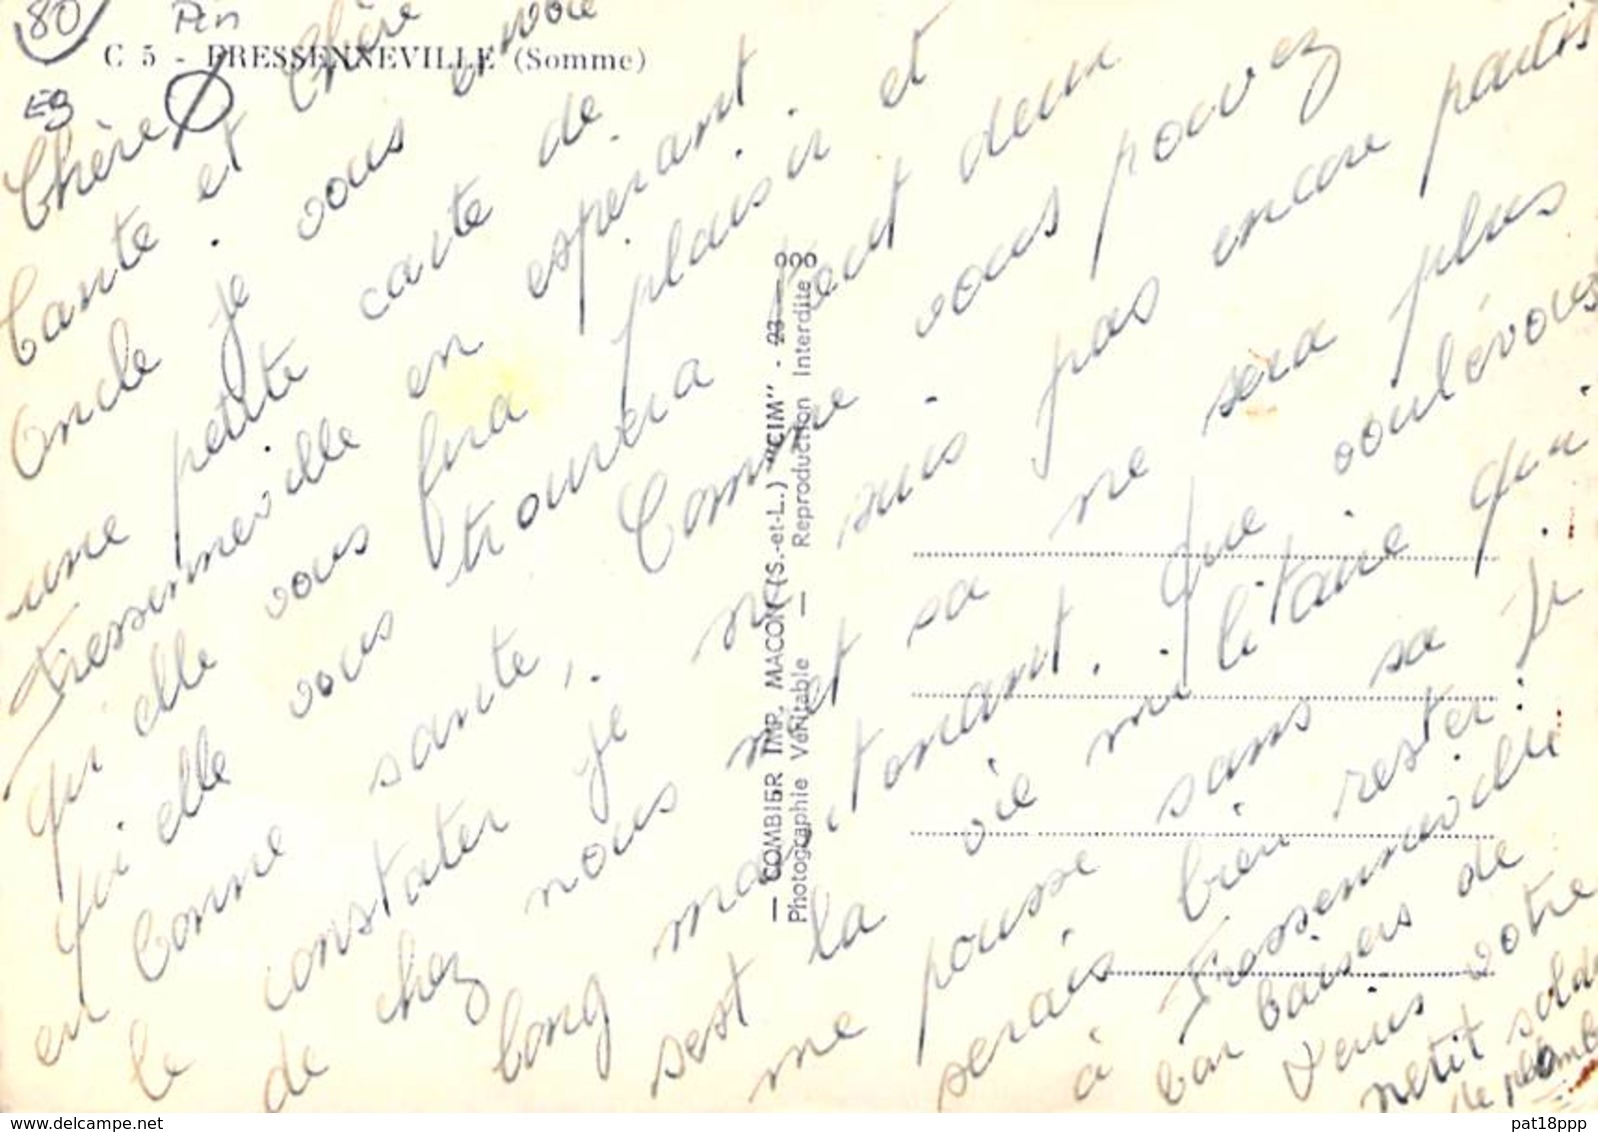 80
Pin
C 5 - FRESSENNEVILLE (Somme)
E9
Chère
tante et Chère
Oncle . je vous envoie
une petite carte de
Fressenneville en esperant .
qu'elle vous fera plaisir et
qu'elle vous trouvera tout deux
en bonne santé, . Comme . vous pouvez
le constater je ne suis pas encore partis
de chez nous met sa ne sera plus
long maintenant . Que voulévous
sest la vie militaire qui
me pousse sans sa . Je
serais bien rester .
à Fressenneville
bon baisers de
Denis votre
petit soldat
de plomb
— COMBIER IMP. MACON (S.-et-L.) "CIM" - 23 — 000
Photographie Véritable — Reproduction Interdite
www.delcampe.net
pat18ppp